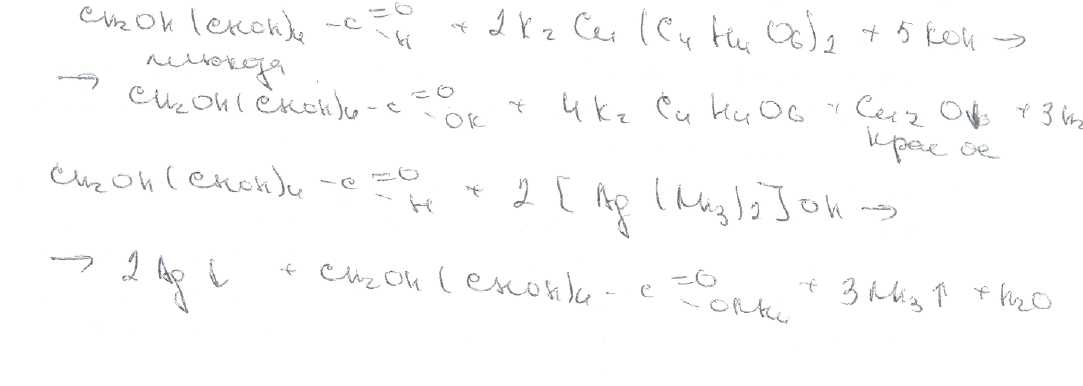 CH2OH(CHOH)4 -C =O -H + 2K2Cu(C4H4O6)2 + 5KOH →
глюкоза
→ CH2OH(CHOH)4-C =O -OK + 4K2C4H4O6 + Cu2O↓ + 3H2
красное
CH2OH(CHOH)4 -C =O -H + 2[Ag(NH3)2]OH →
→ 2Ag↓ + CH2OH(CHOH)4 -C =O -ONH4 + 3NH3↑ + H2O